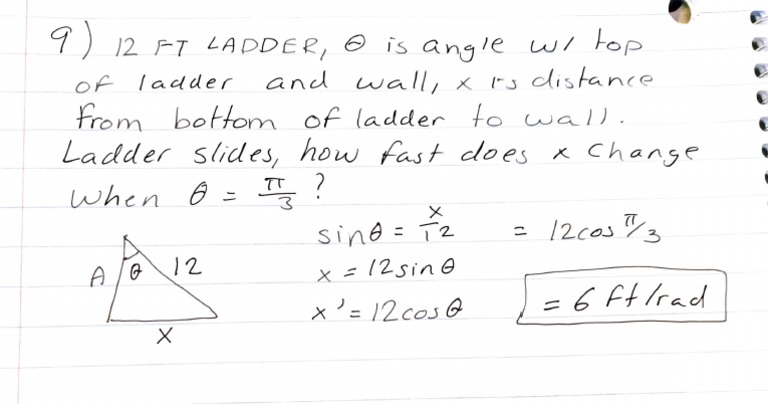 9) 12 FT LADDER, θ is angle w/ top
of ladder and wall, x is distance
from bottom of ladder to wall.
Ladder slides, how fast does x change
when θ = π/3 ?
A θ 12
x
sinθ = x/12
x = 12 sinθ
x' = 12 cosθ
= 12 cos π/3
= 6 ft/rad